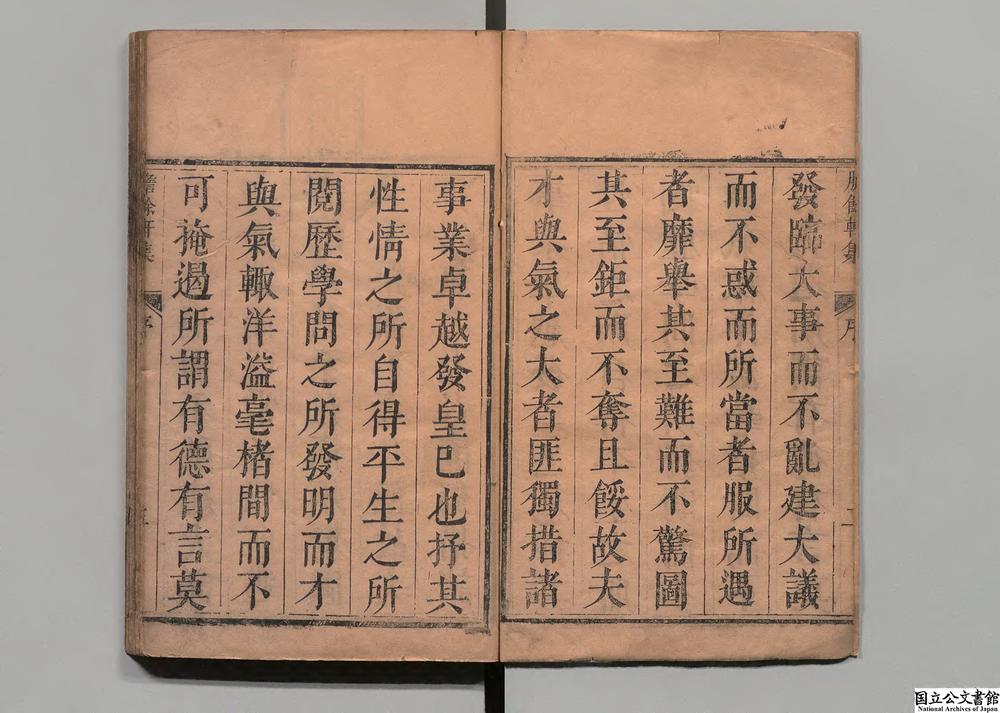 發臨大事而不亂建大議
而不惑而所當者服所遇
者靡舉其至難而不驚圖
其至鉅而不奪且餒故夫
才與氣之大者匪獨措諸
事業卓越發皇已也抒其
性情之所自得平生之所
閱歷學問之所發明而才
與氣輙洋溢毫楮間而不
可掩遏所謂有德有言莫
序
二
国立公文書館
National Archives of Japan